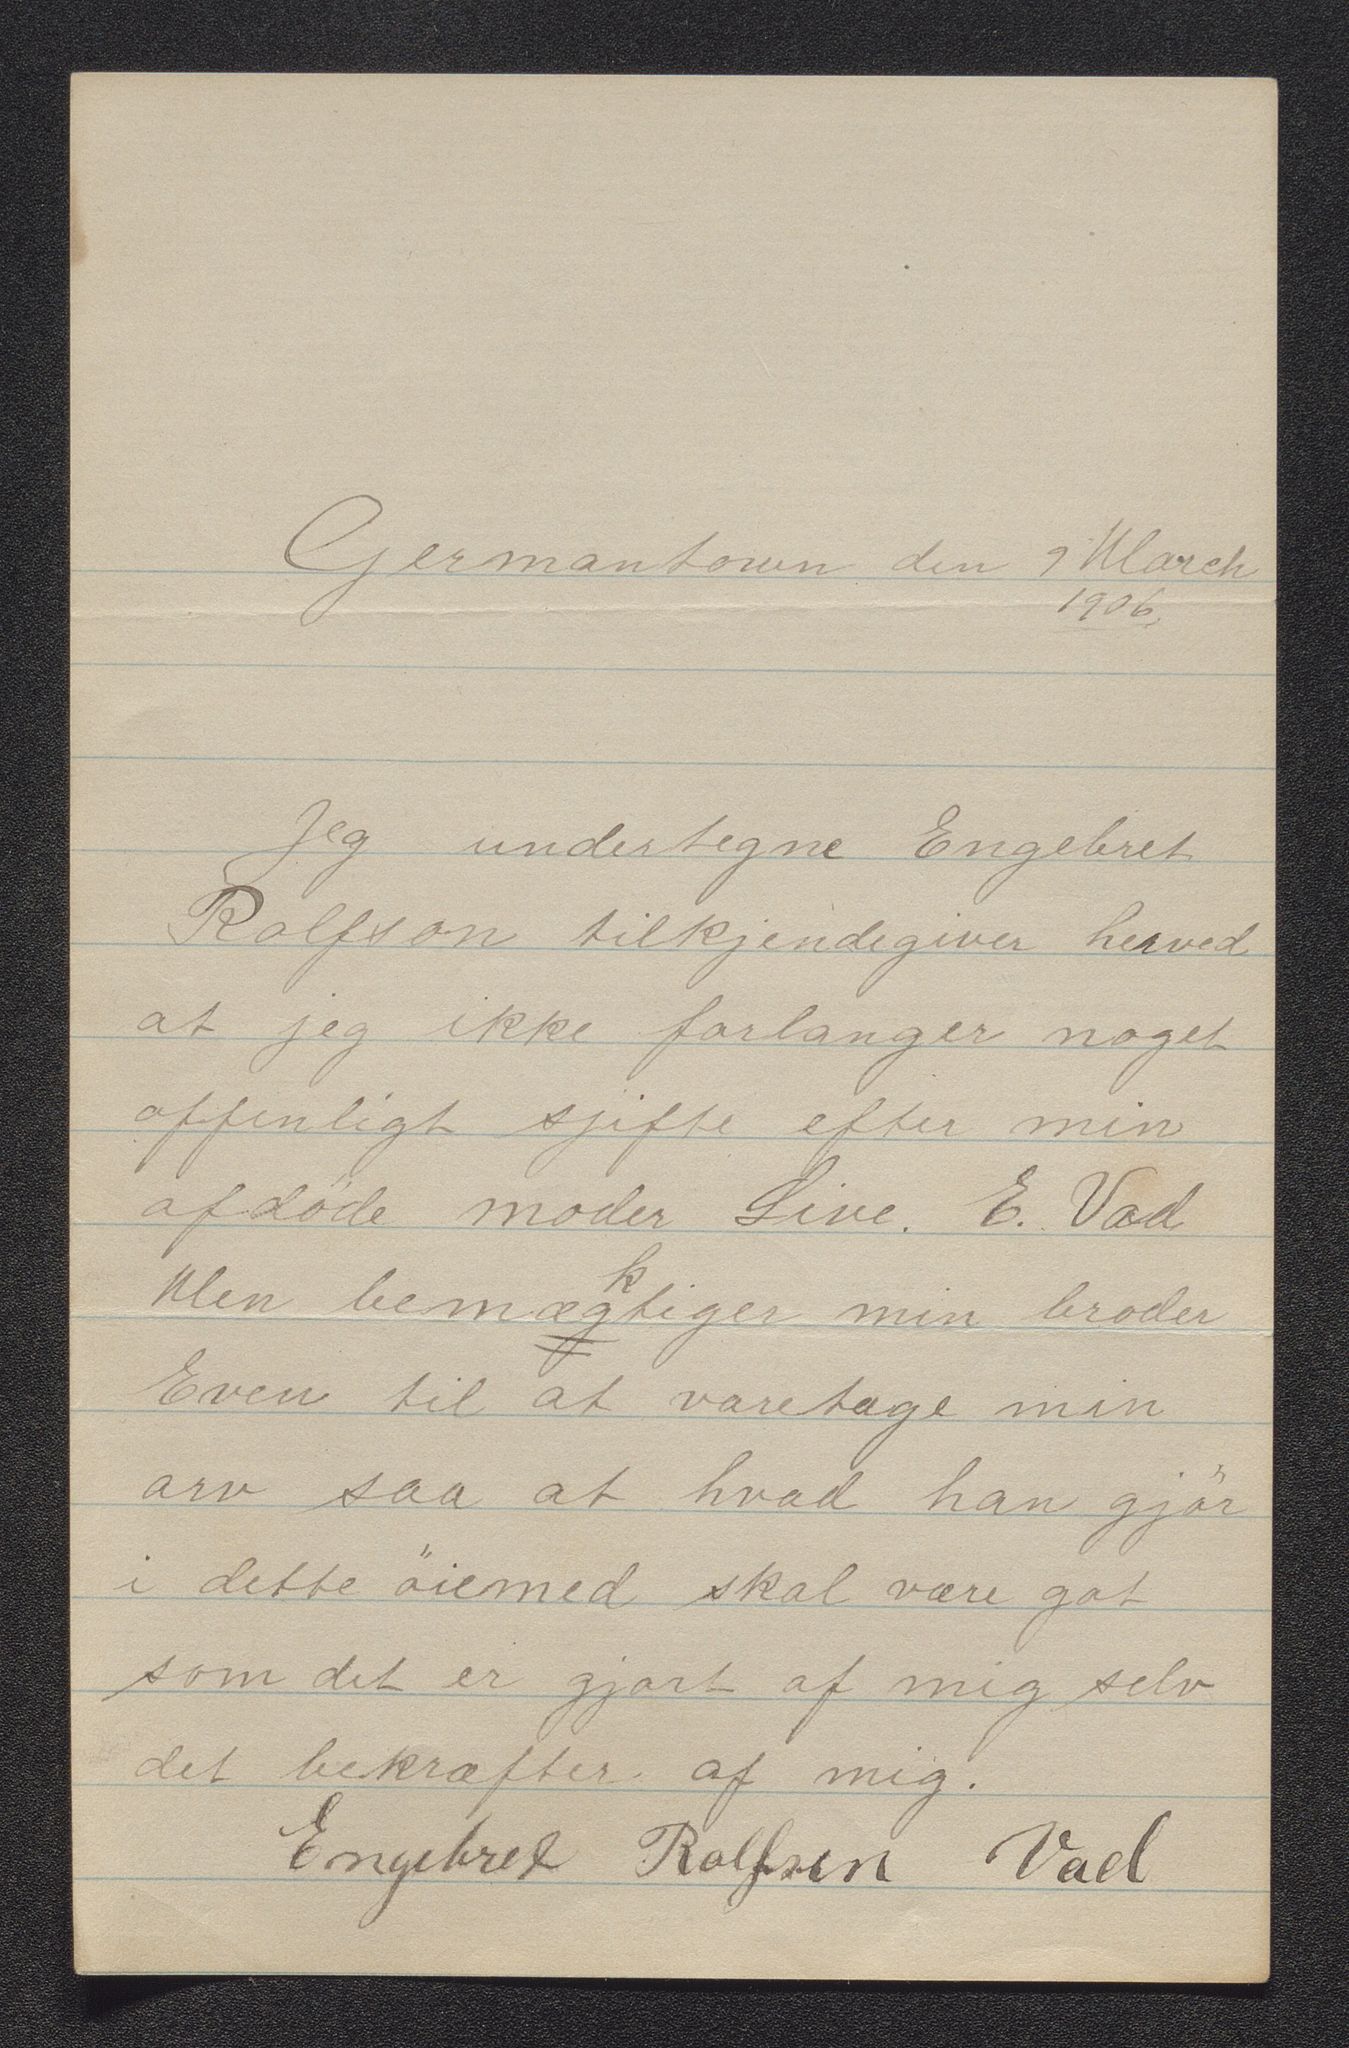 Germantown den 9 March
1906,
Jeg undertegne Engebret
Rolfson tilkjendegiver herved
at jeg ikke forlanger noget
offenligt sjifte efter min
afdöde moder Live. E. Vad
Men bemægktiger min broder
Even til at varetage min
arv saa at hvad han gjör
i dette öiemed skal være got
som det er gjort af mig selv
det bekræfter af mig.
Engebret Rolfsen Vad